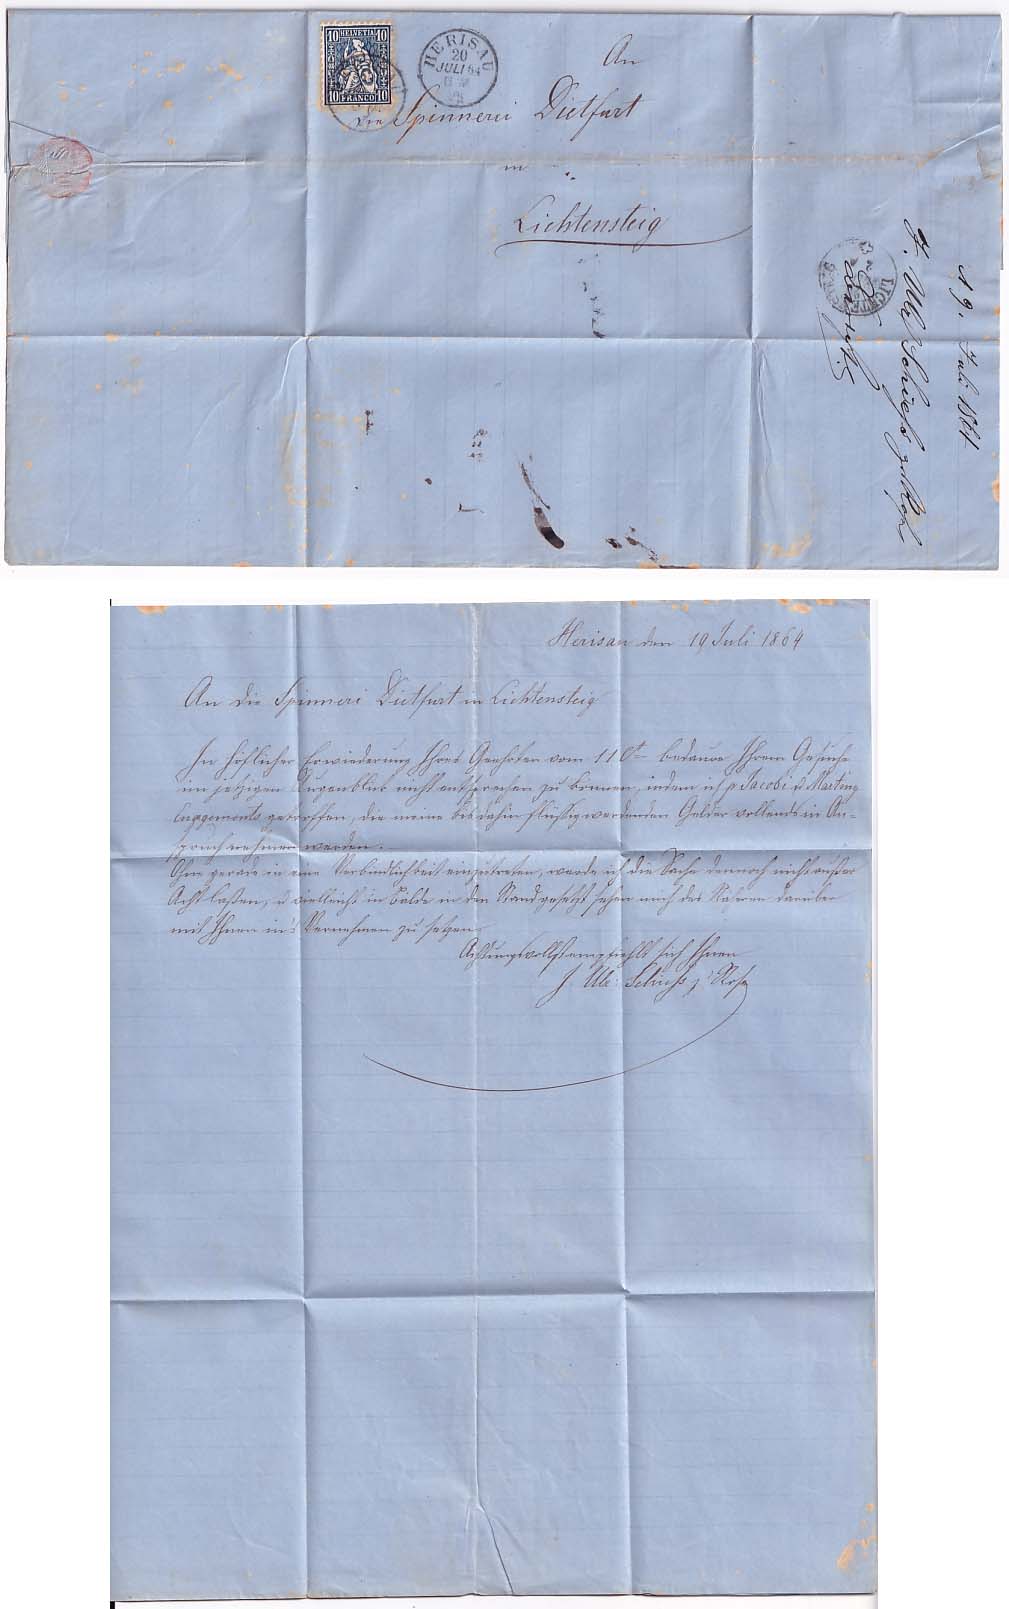 10 HELVETIA 10
10 FRANCO 10
HERISAU
20
JULI 64
An
Die Spinnerei Dietfurt
in
Lichtensteig
19. Juli 1864
J. Ulr. Schiess z. Rose
Herisau
Herisau den 19 Juli 1864
An die Spinnerei Dietfurt in Lichtensteig
In höflicher Erwiederung Ihres Geehrten vom 11 ct bedaure Ihrem Gesuche
im jetzigen Augenblick nicht entsprechen zu können, indem ich p Jacobi & Martiny
Engagements getroffen, die meine bis dahin flüssig werdenden Gelder vollends in An-
spruch nehmen werden.
Ohne gerade in eine Verbindlichkeit einzutreten, werde ich die Sache dennoch nicht außer
Acht laßen, u vielleicht in Bälde in den Stand gesetzt sehen mich des Nähern darüber
mit Ihnen in's Vernehmen zu setzen.
Achtungsvollst empfiehlt sich Ihnen
J. Ulr: Schiess z. Rose